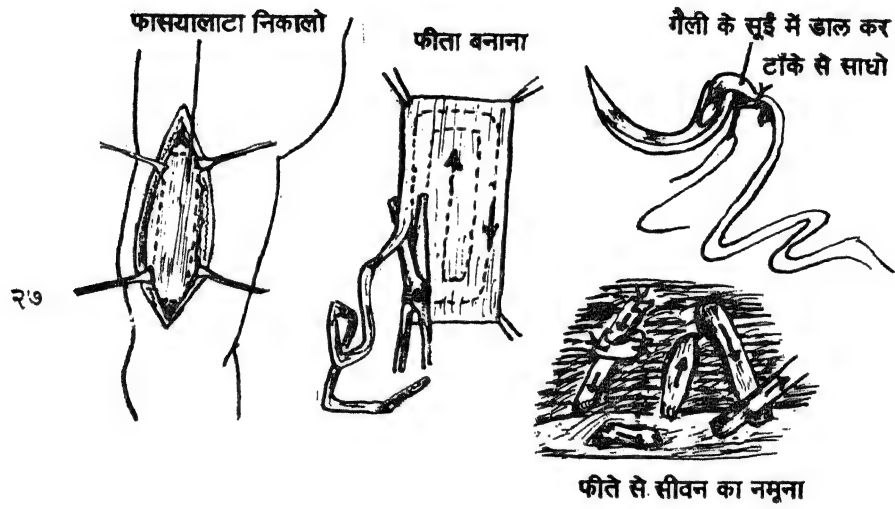 फासयालाटा निकालो
फीता बनाना
गैली के सूई में डाल कर
टाँके से साधो
२७
फीते से सीवन का नमूना